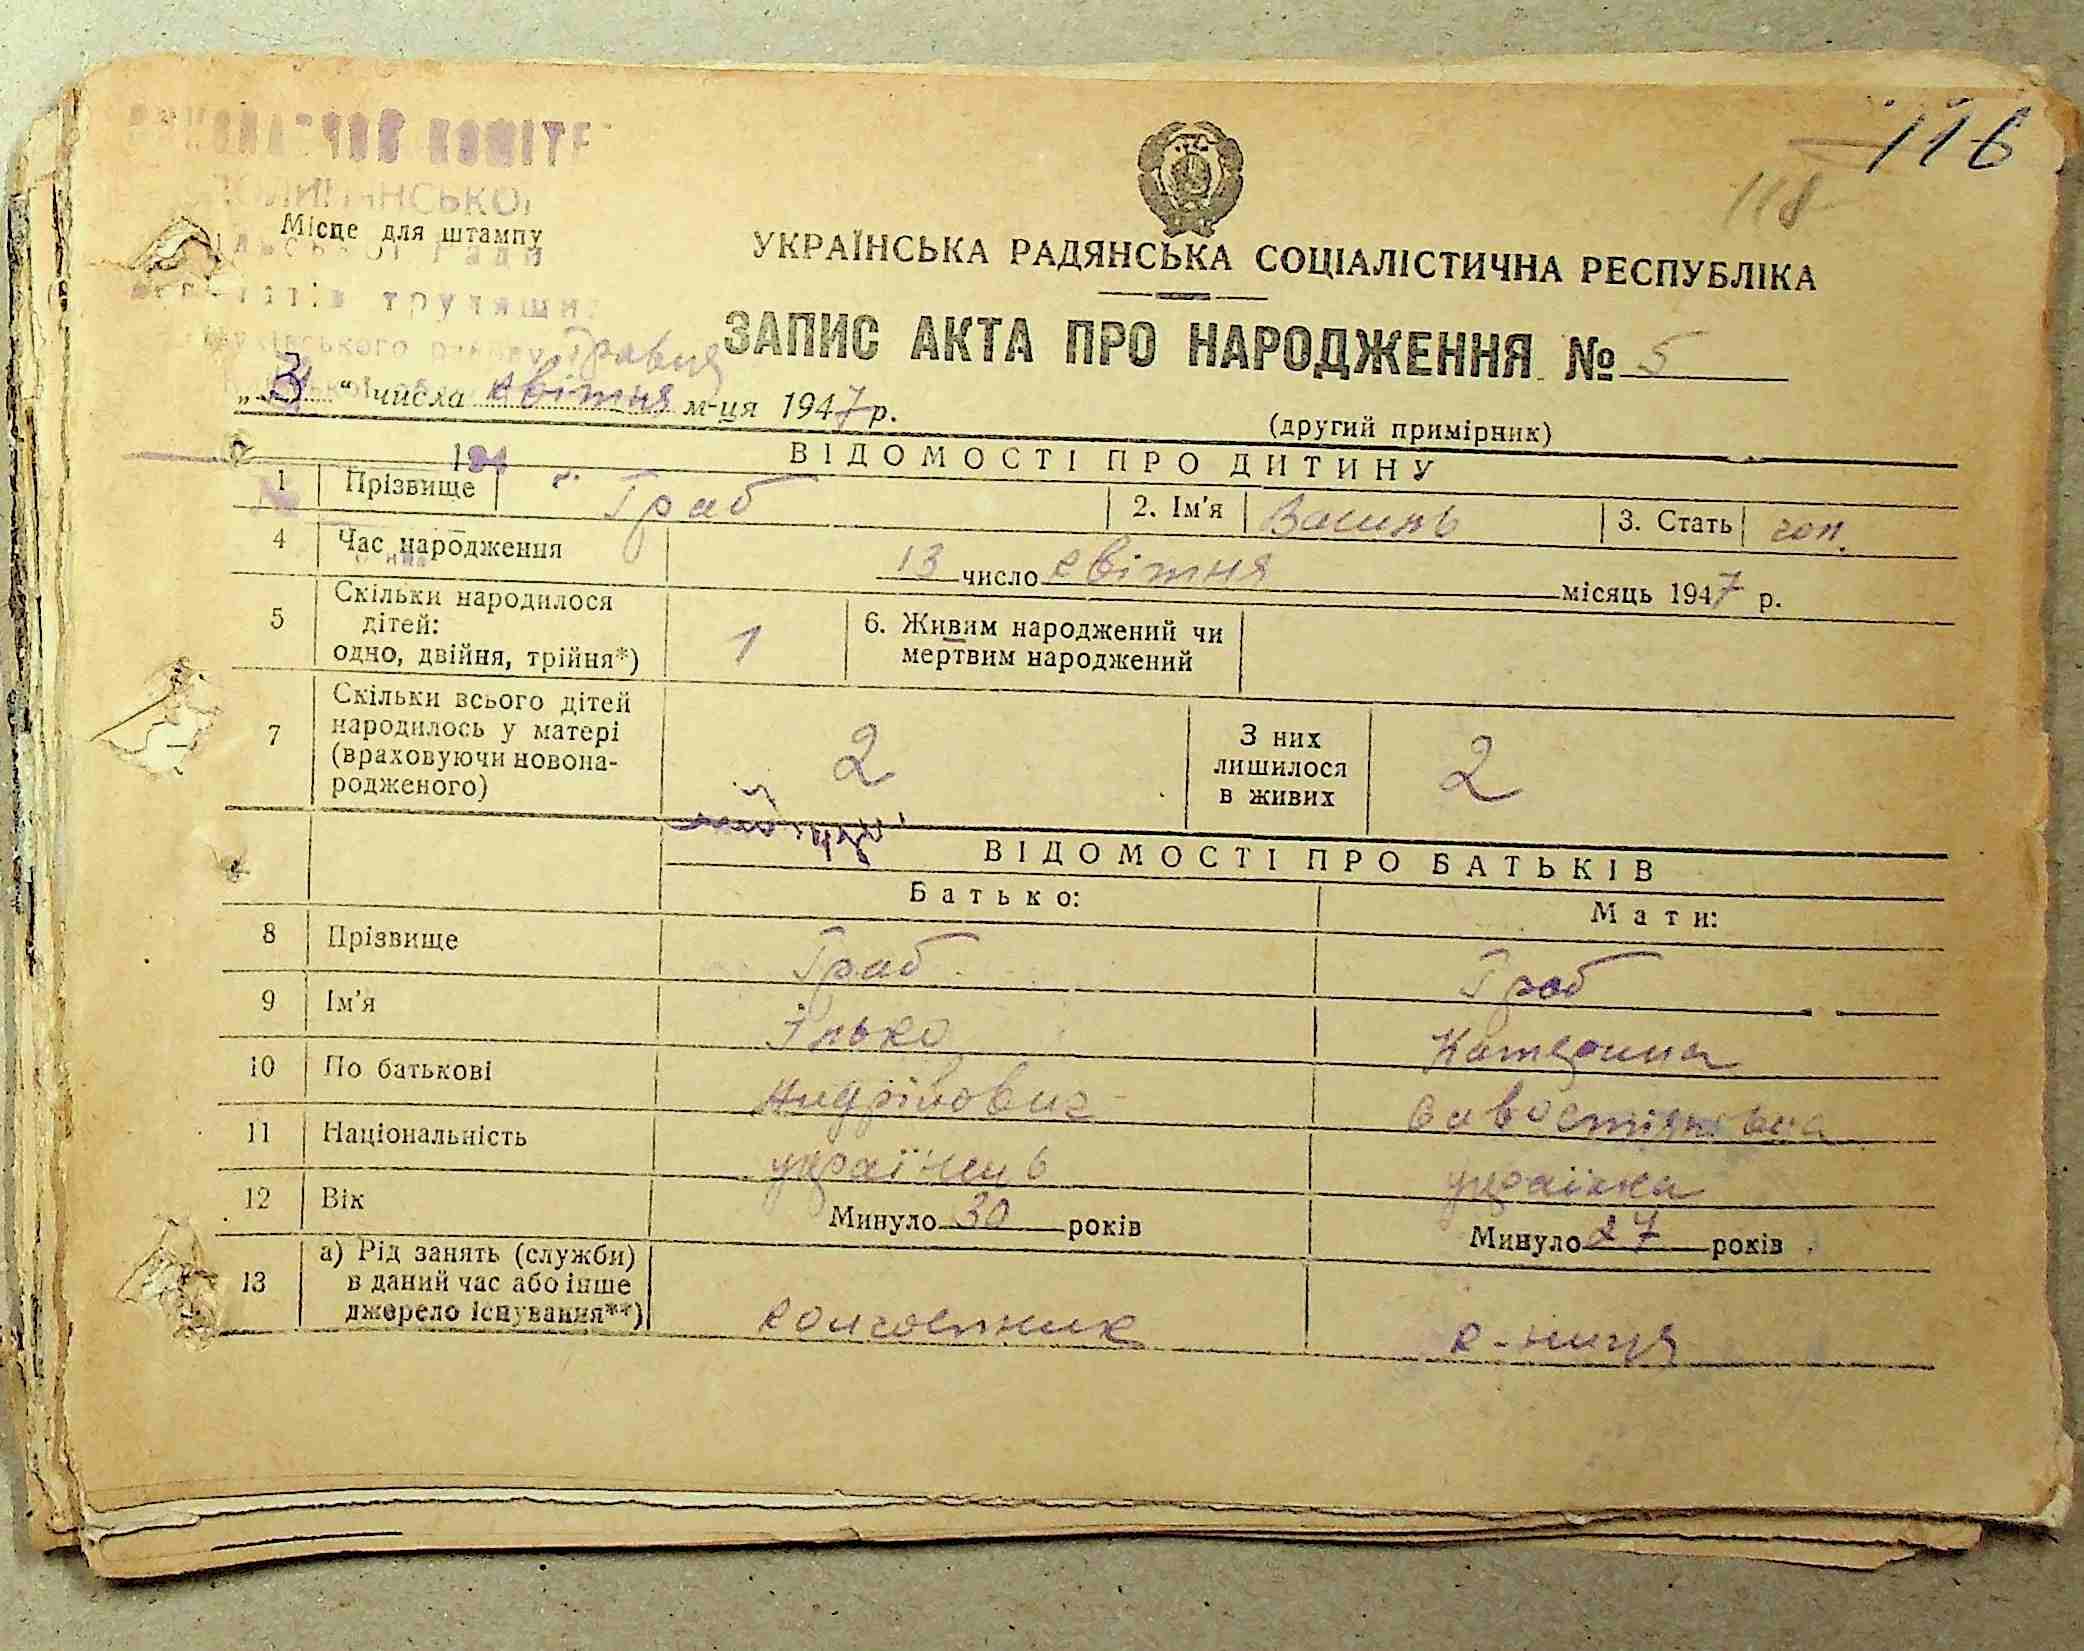 116
118
Місце для штампу
УКРАЇНСЬКА РАДЯНСЬКА СОЦІАЛІСТИЧНА РЕСПУБЛІКА
ЗАПИС АКТА ПРО НАРОДЖЕННЯ № 5
травня
„3“ числа квітня м-ця 1947 р.
(другий примірник)
ВІДОМОСТІ ПРО ДИТИНУ
1 Прізвище Граб 2. Ім'я Василь 3. Стать чол.
4 Час народження 13 число квітня місяць 1947 р.
5 Скільки народилося
дітей:
одно, двійня, трійня*) 1
6. Живим народжений чи
мертвим народжений
7 Скільки всього дітей
народилось у матері
(враховуючи новона-
родженого) 2
З них
лишилося
в живих 2
ВІДОМОСТІ ПРО БАТЬКІВ
Батько: Мати:
8 Прізвище Граб Граб
9 Ім'я Ілько Катерина
10 По батькові Андрійович Савостянівна
11 Національність українець українка
12 Вік Минуло 30 років Минуло 27 років
13 а) Рід занять (служби)
в даний час або інше
джерело існування**) колгоспник к-ниця